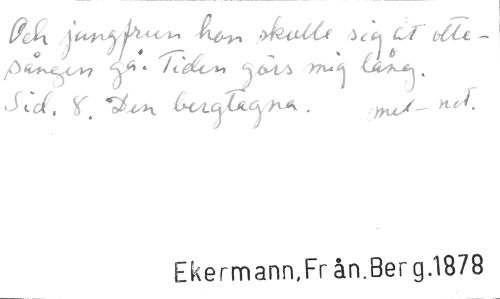 Och jungfrun hon skulle sig åt otte-
sången gå. Tiden görs mig lång.
Sid. 8. Den bergtagna. mel-not.
Ekermann, Från. Berg. 1878